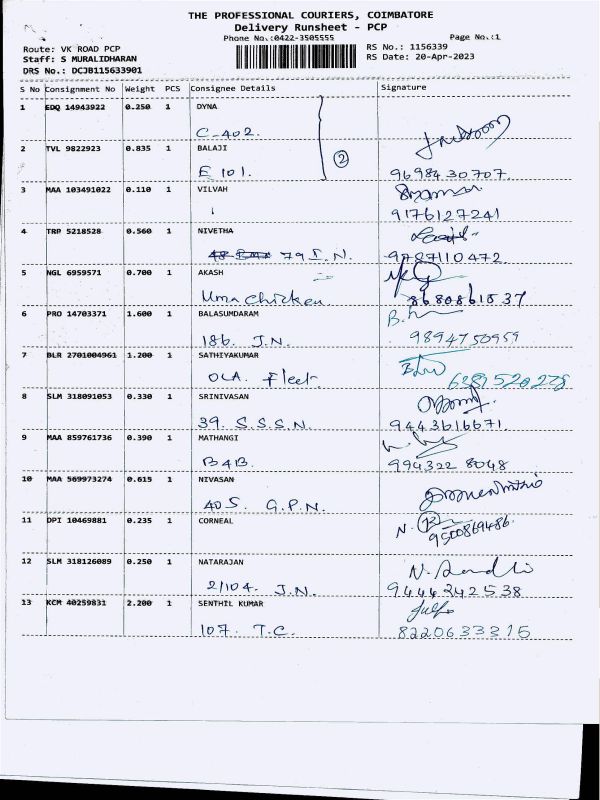 THE PROFESSIONAL COURIERS, COIMBATORE
Delivery Runsheet - PCP
Phone No.:0422-3505555
Page No.:1
Route: VK ROAD PCP
RS No.: 1156339
Staff: S MURALIDHARAN
RS Date: 20-Apr-2023
DRS No.: DCJB115633901
S No Consignment No Weight PCS Consignee Details Signature
1 EDQ 14943922 0.250 1 DYNA
C-402.
2 TVL 9822923 0.835 1 BALAJI
2
E 101. 9698430707.
3 MAA 103491022 0.110 1 VILVAH
9176127241
4 TRP 5218528 0.560 1 NIVETHA
79 I.N. 9787110472.
5 NGL 6959571 0.700 1 AKASH
Uma Chicken 8680861537
6 PRO 14703371 1.600 1 BALASUMDARAM
186. J.N. 9894750959
7 BLR 2701004961 1.200 1 SATHIYAKUMAR
OLA. Fleet 6381520228
8 SLM 318091053 0.330 1 SRINIVASAN
39. S.S.S.N. 9443616671.
9 MAA 859761736 0.390 1 MATHANGI
B4B. 994322 8048
10 MAA 569973274 0.615 1 NIVASAN
405. G.P.N.
11 DPI 10469881 0.235 1 CORNEAL
9500869486.
12 SLM 318126089 0.250 1 NATARAJAN
2/104. J.N. 9444242538
13 KCM 40259831 2.200 1 SENTHIL KUMAR
107. T.C. 8220633315